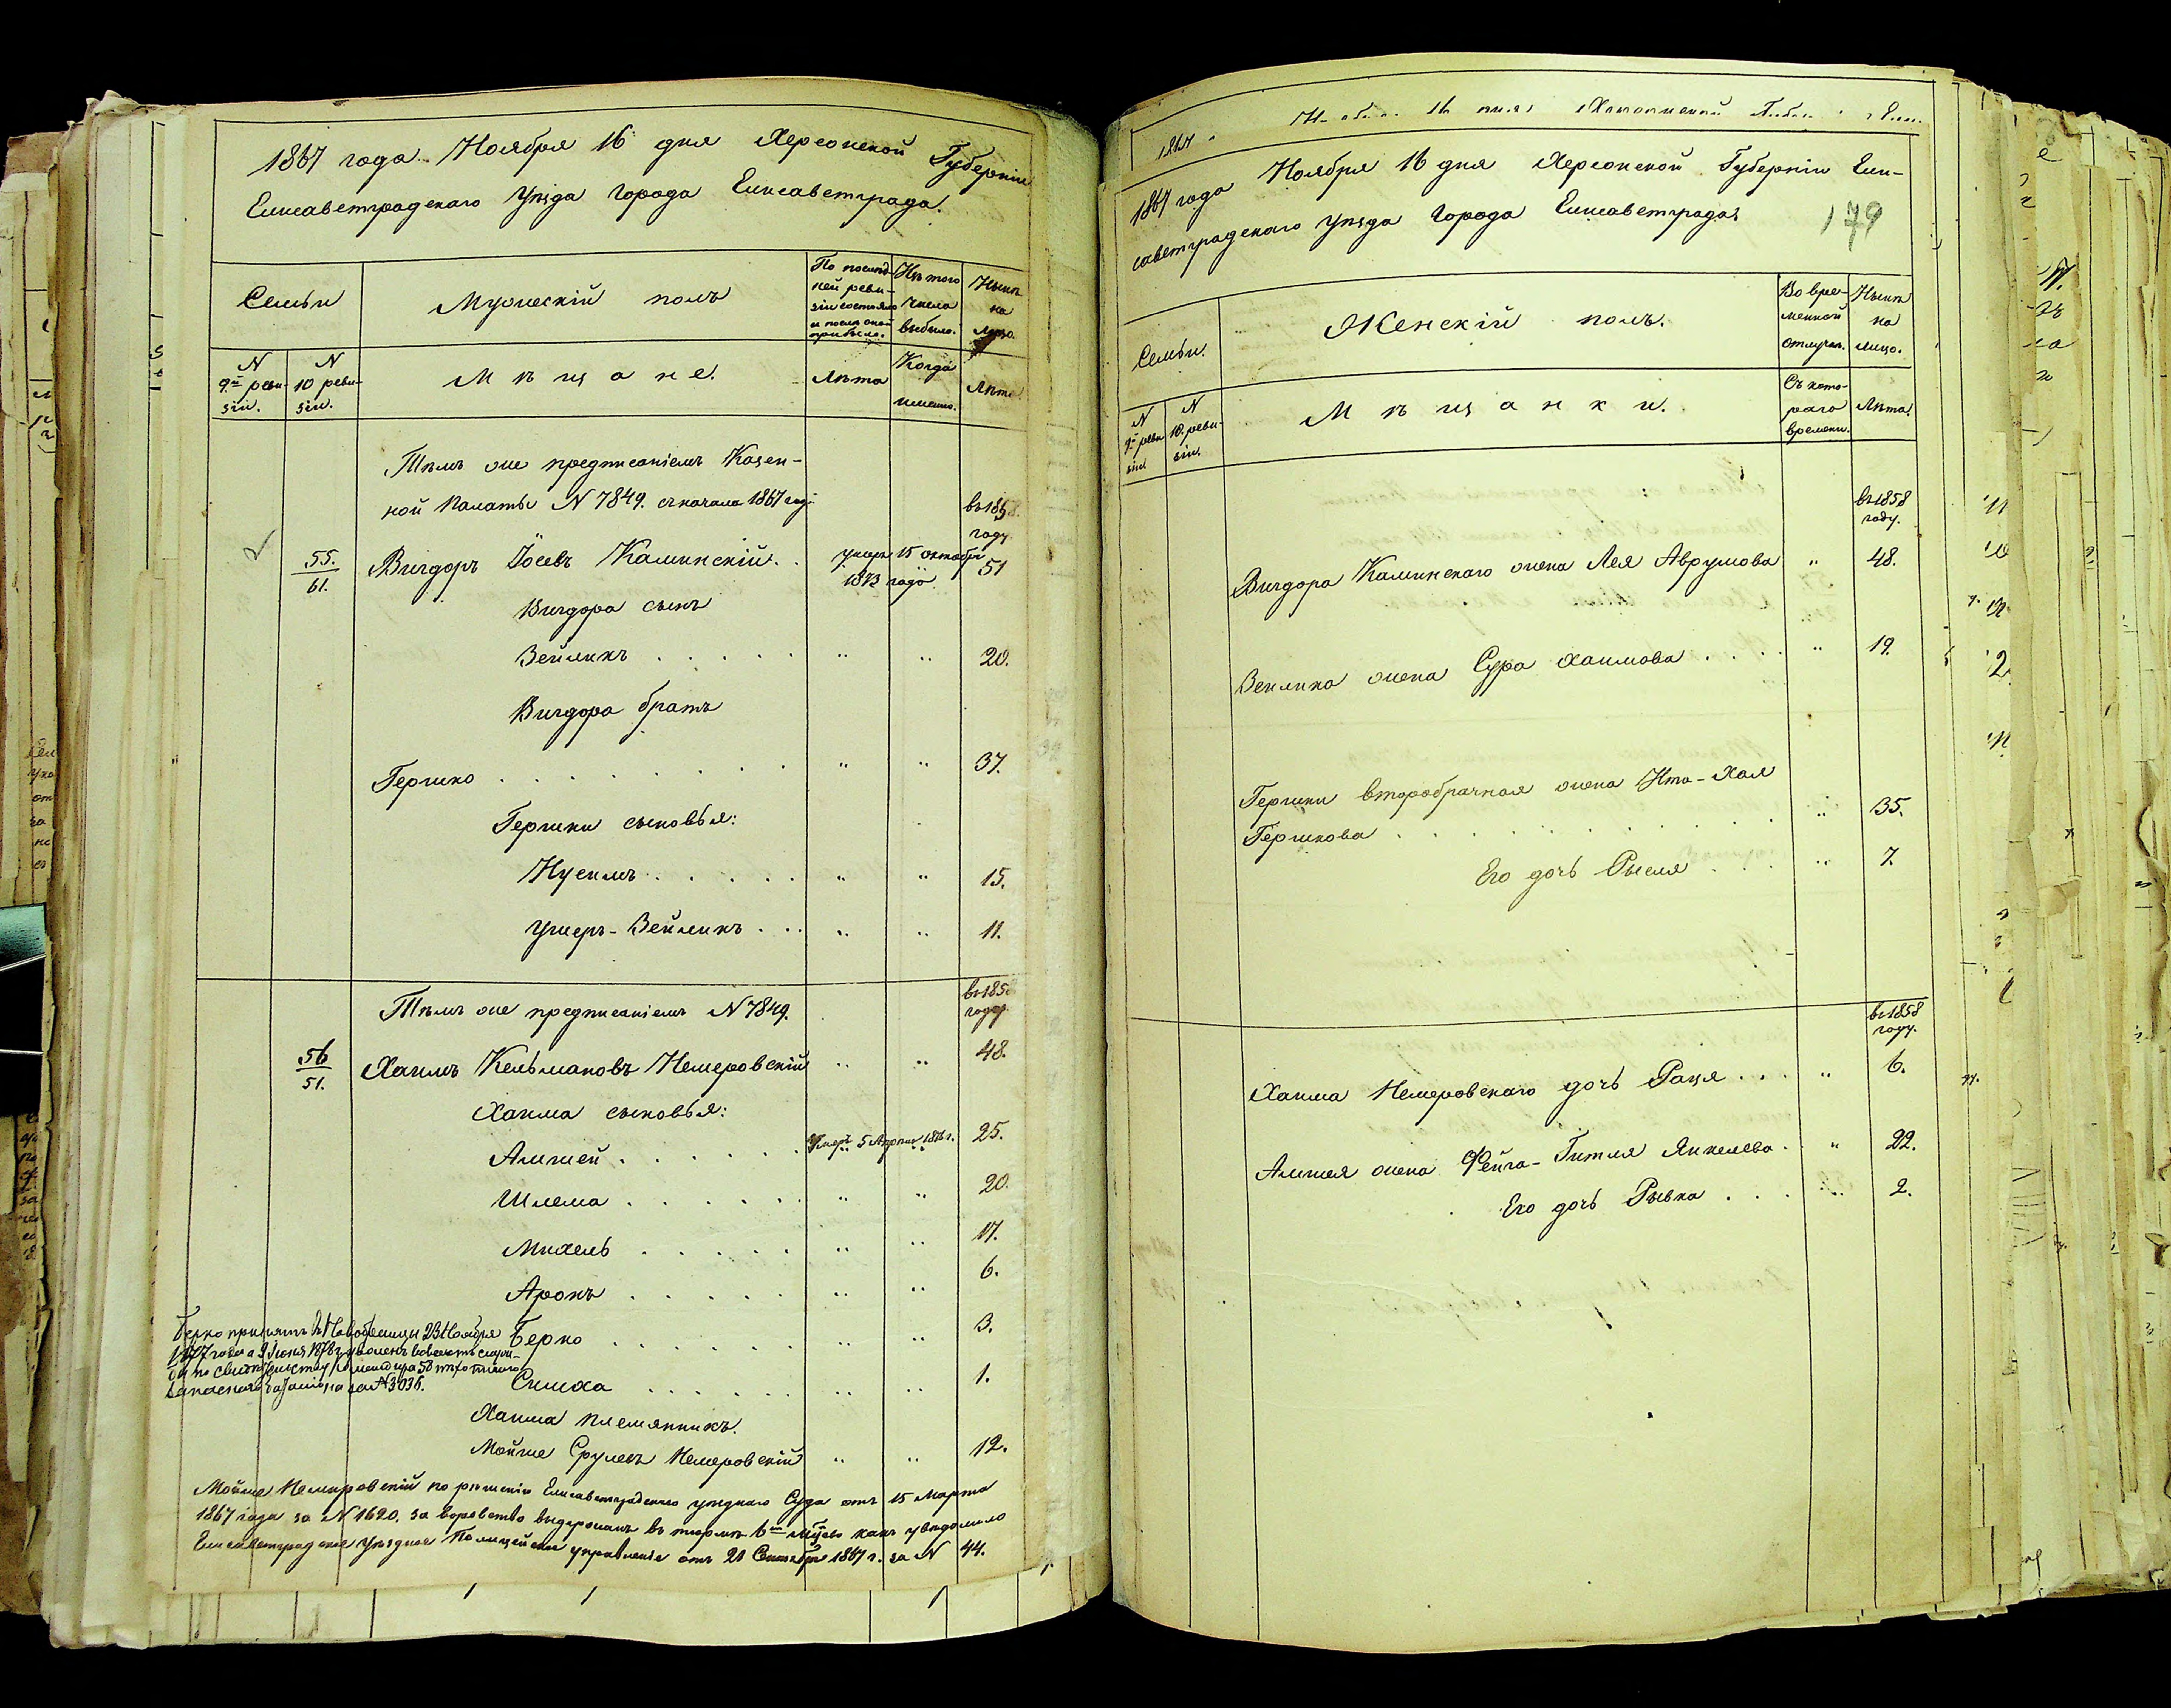 1867 года Ноября 16 дня Херсонской Губерніи
Елисаветградскаго Уѣзда Города Елисаветграда.
Семьи
Мужескій полъ
По послѣд-
ней реви-
зіи состояло
и послѣ оной
прибыло.
Изъ того
числа
выбыло.
Нынѣ
на
лицо.
N
9й реви-
зіи.
N
10 реви-
зіи.
Мѣщане.
Лѣта
Когда
именно.
Лѣта.
Тѣмъ же предписаніемъ Казен-
ной Палаты N 7849. съ начала 1867 год
въ 1858
году
55.
61.
Вигдоръ Іосевъ Каминскій.
умеръ 15 октября
1873 года
51
Вигдора сынъ
Вейликъ . . . . . " " 20.
Вигдора братъ
Гершко . . . . . . . . . " " 37.
Гершки сыновья:
Нусимъ . . . . . " " 15.
Ушеръ-Вейликъ . . . " " 11.
Тѣмъ же предписаніемъ N 7849.
въ 1858
году
56
51.
Хаимъ Кельмановъ Немеровскій " " 48.
Хаима сыновья:
Амшей . . . . . . Умеръ 5 Апрѣля 1876 г. 25.
Шлема . . . . . . " " 20.
Михель . . . . . " " 17.
Аронъ . . . . . " " 6.
Берко принятъ въ Новобранцы 23 Ноября
1877 года а 9 Іюня 1878 г. уволенъ вовсе отъ служ-
бы по свидѣтельству Командира 58 пѣхотнаго
запаснаго баталіона за N 3038.
Берко . . . . . . " " 3.
Симха . . . . . . " " 1.
Хаима племянникъ.
Мойше Срулевъ Немеровскій " " 12.
Мойше Немировскій по рѣшенію Елисаветградскаго уѣзднаго Суда отъ 15 Марта
1867 года за N 1620. за воровство выдержанъ въ тюрьмѣ 6ть мѣсяцевъ какъ увѣдомило
Елисаветградское Уѣздное Полицейское управленіе отъ 21 Сентября 1867 г. за N 44.
1867
1867 года Ноября 16 дня Херсонской Губерніи Ели-
саветградскаго Уѣзда Города Елисаветграда
179
Семьи.
Женскій полъ.
Во вре-
менной
отлучкѣ.
Нынѣ
на
лицо.
N
9й реви-
зіи.
N
10. реви-
зіи.
Мѣщанки.
Съ кото-
раго
времени.
Лѣта.
въ 1858
году.
Вигдора Каминскаго жена Лея Аврумова " 48.
Вейлика жена Сура Хаимова . . . . " 19.
Гершки второбрачная жена Ита-Хая
Гершкова . . . . . . . . . . " 35.
Его дочь Рыся . . . " 7.
въ 1858
году.
Хаима Немеровскаго дочь Рася . . . " 6.
Амшея жена Фейга-Гитля Янкелева . . " 22.
Его дочь Рывка . . . " 2.